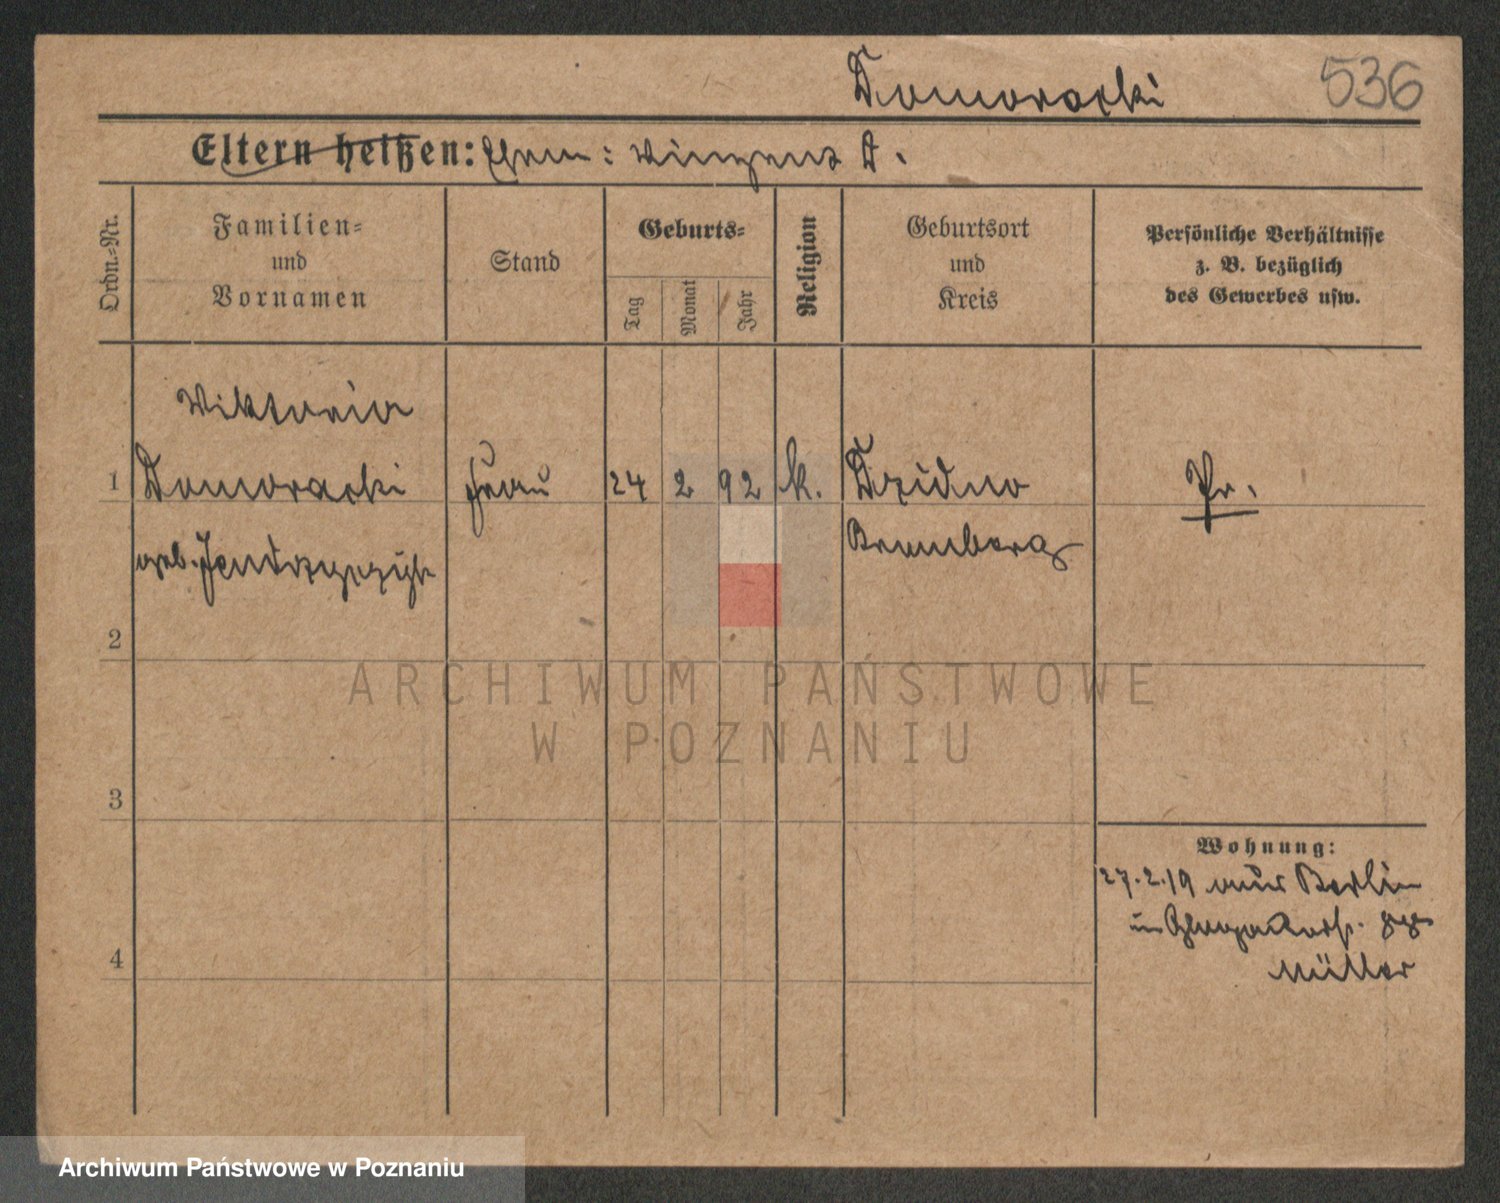 Domoracki 536
Eltern heißen: Ehem: Vinzent D.
Ordn.-Nr.
Familien-
und
Vornamen
Stand
Geburts-
Tag
Monat
Jahr
Religion
Geburtsort
und
Kreis
Persönliche Verhältnisse
z. B. bezüglich
des Gewerbes usw.
Viktoria
1 Domoracki Frau 24 2 92 k. Dzidno Pr.
geb. Bromberg
2
ARCHIWUM PAŃSTWOWE
W POZNANIU
3
Wohnung:
27.2.19 aus Berlin
4
Müller
Archiwum Państwowe w Poznaniu